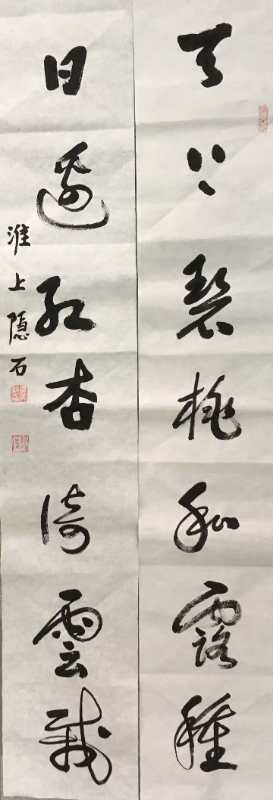 天上碧桃和露種
日邊紅杏倚雲栽
淮上隐石